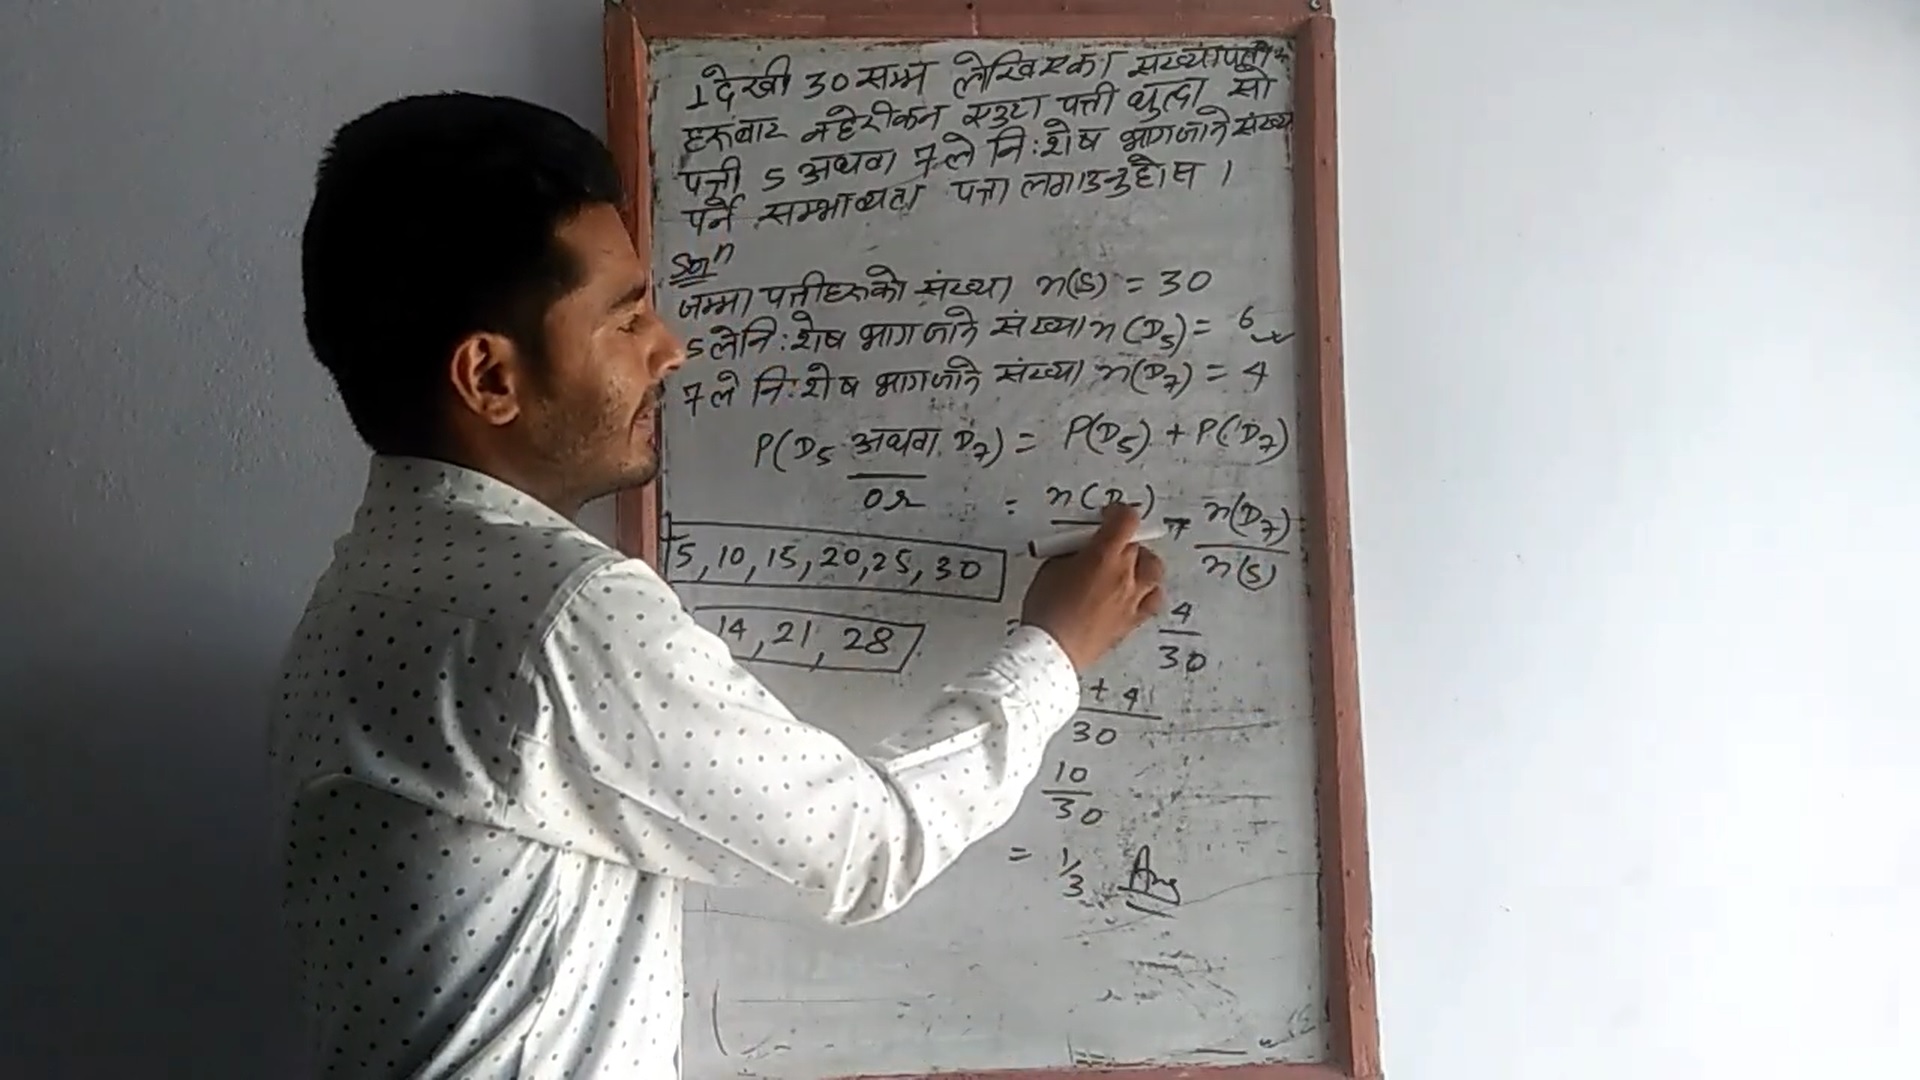 1 देखी 30 सम्म लेखिएका संख्यापत्ती
हरुबाट नहेरीकन एउटा पत्ती थुत्दा सो
पत्ती 5 अथवा 7 ले नि:शेष भाग जाने संख्या
पर्ने सम्भाव्यता पत्ता लगाउनुहोस ।
Solⁿ
जम्मा पत्तीहरुको संख्या n(S) = 30
5 ले नि:शेष भाग जाने संख्या n(D₅) = 6
7 ले नि:शेष भाग जाने संख्या n(D₇) = 4
P(D₅ अथवा D₇) = P(D₅) + P(D₇)
or
= n(D + n(D₇)
n(S)
5, 10, 15, 20, 25, 30
14, 21, 28
= 4
30
+ 4
30
10
30
= 1/3 Ans